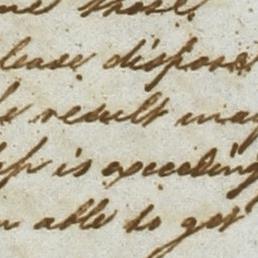 me those.
lease dispose
result may
is exceeding
able to get